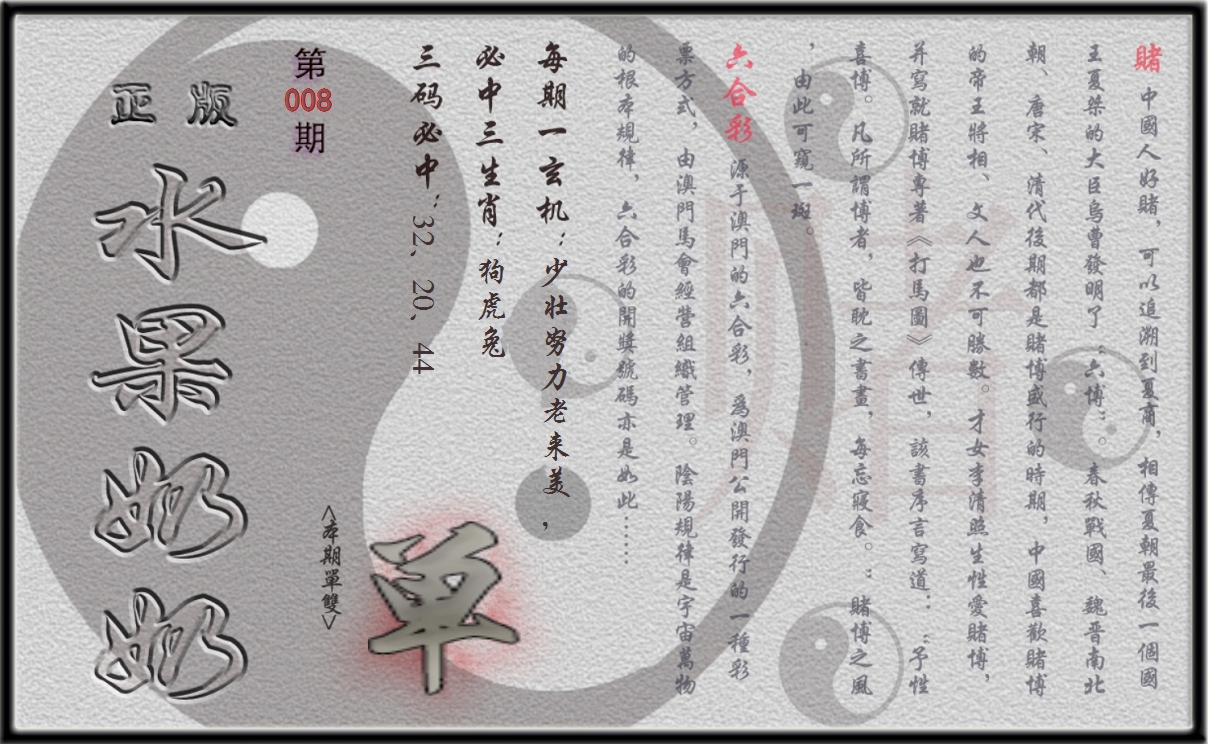 賭 中國人好賭，可以追溯到夏商，相傳夏朝最後一個國
王夏桀的大臣烏曹發明了“六博”。春秋戰國、魏晉南北
朝、唐宋、清代後期都是賭博盛行的時期，中國喜歡賭博
的帝王將相、文人也不可勝數。才女李清照生性愛賭博，
并寫就賭博專著《打馬圖》傳世，該書序言寫道：“予性
喜博。凡所謂博者，皆耽之書畫，每忘寢食。：賭博之風
，由此可窺一斑。
六合彩 源于澳門的六合彩，爲澳門公開發行的一種彩
票方式，由澳門馬會經營組織管理。陰陽規律是宇宙萬物
的根本規律，六合彩的開獎號碼亦是如此……
每期一玄机：少壮努力老来美，
必中三生肖：狗虎兔
三码必中：32、20、44
第
008
期
<本期單雙>
單
正版
水果奶奶
赌